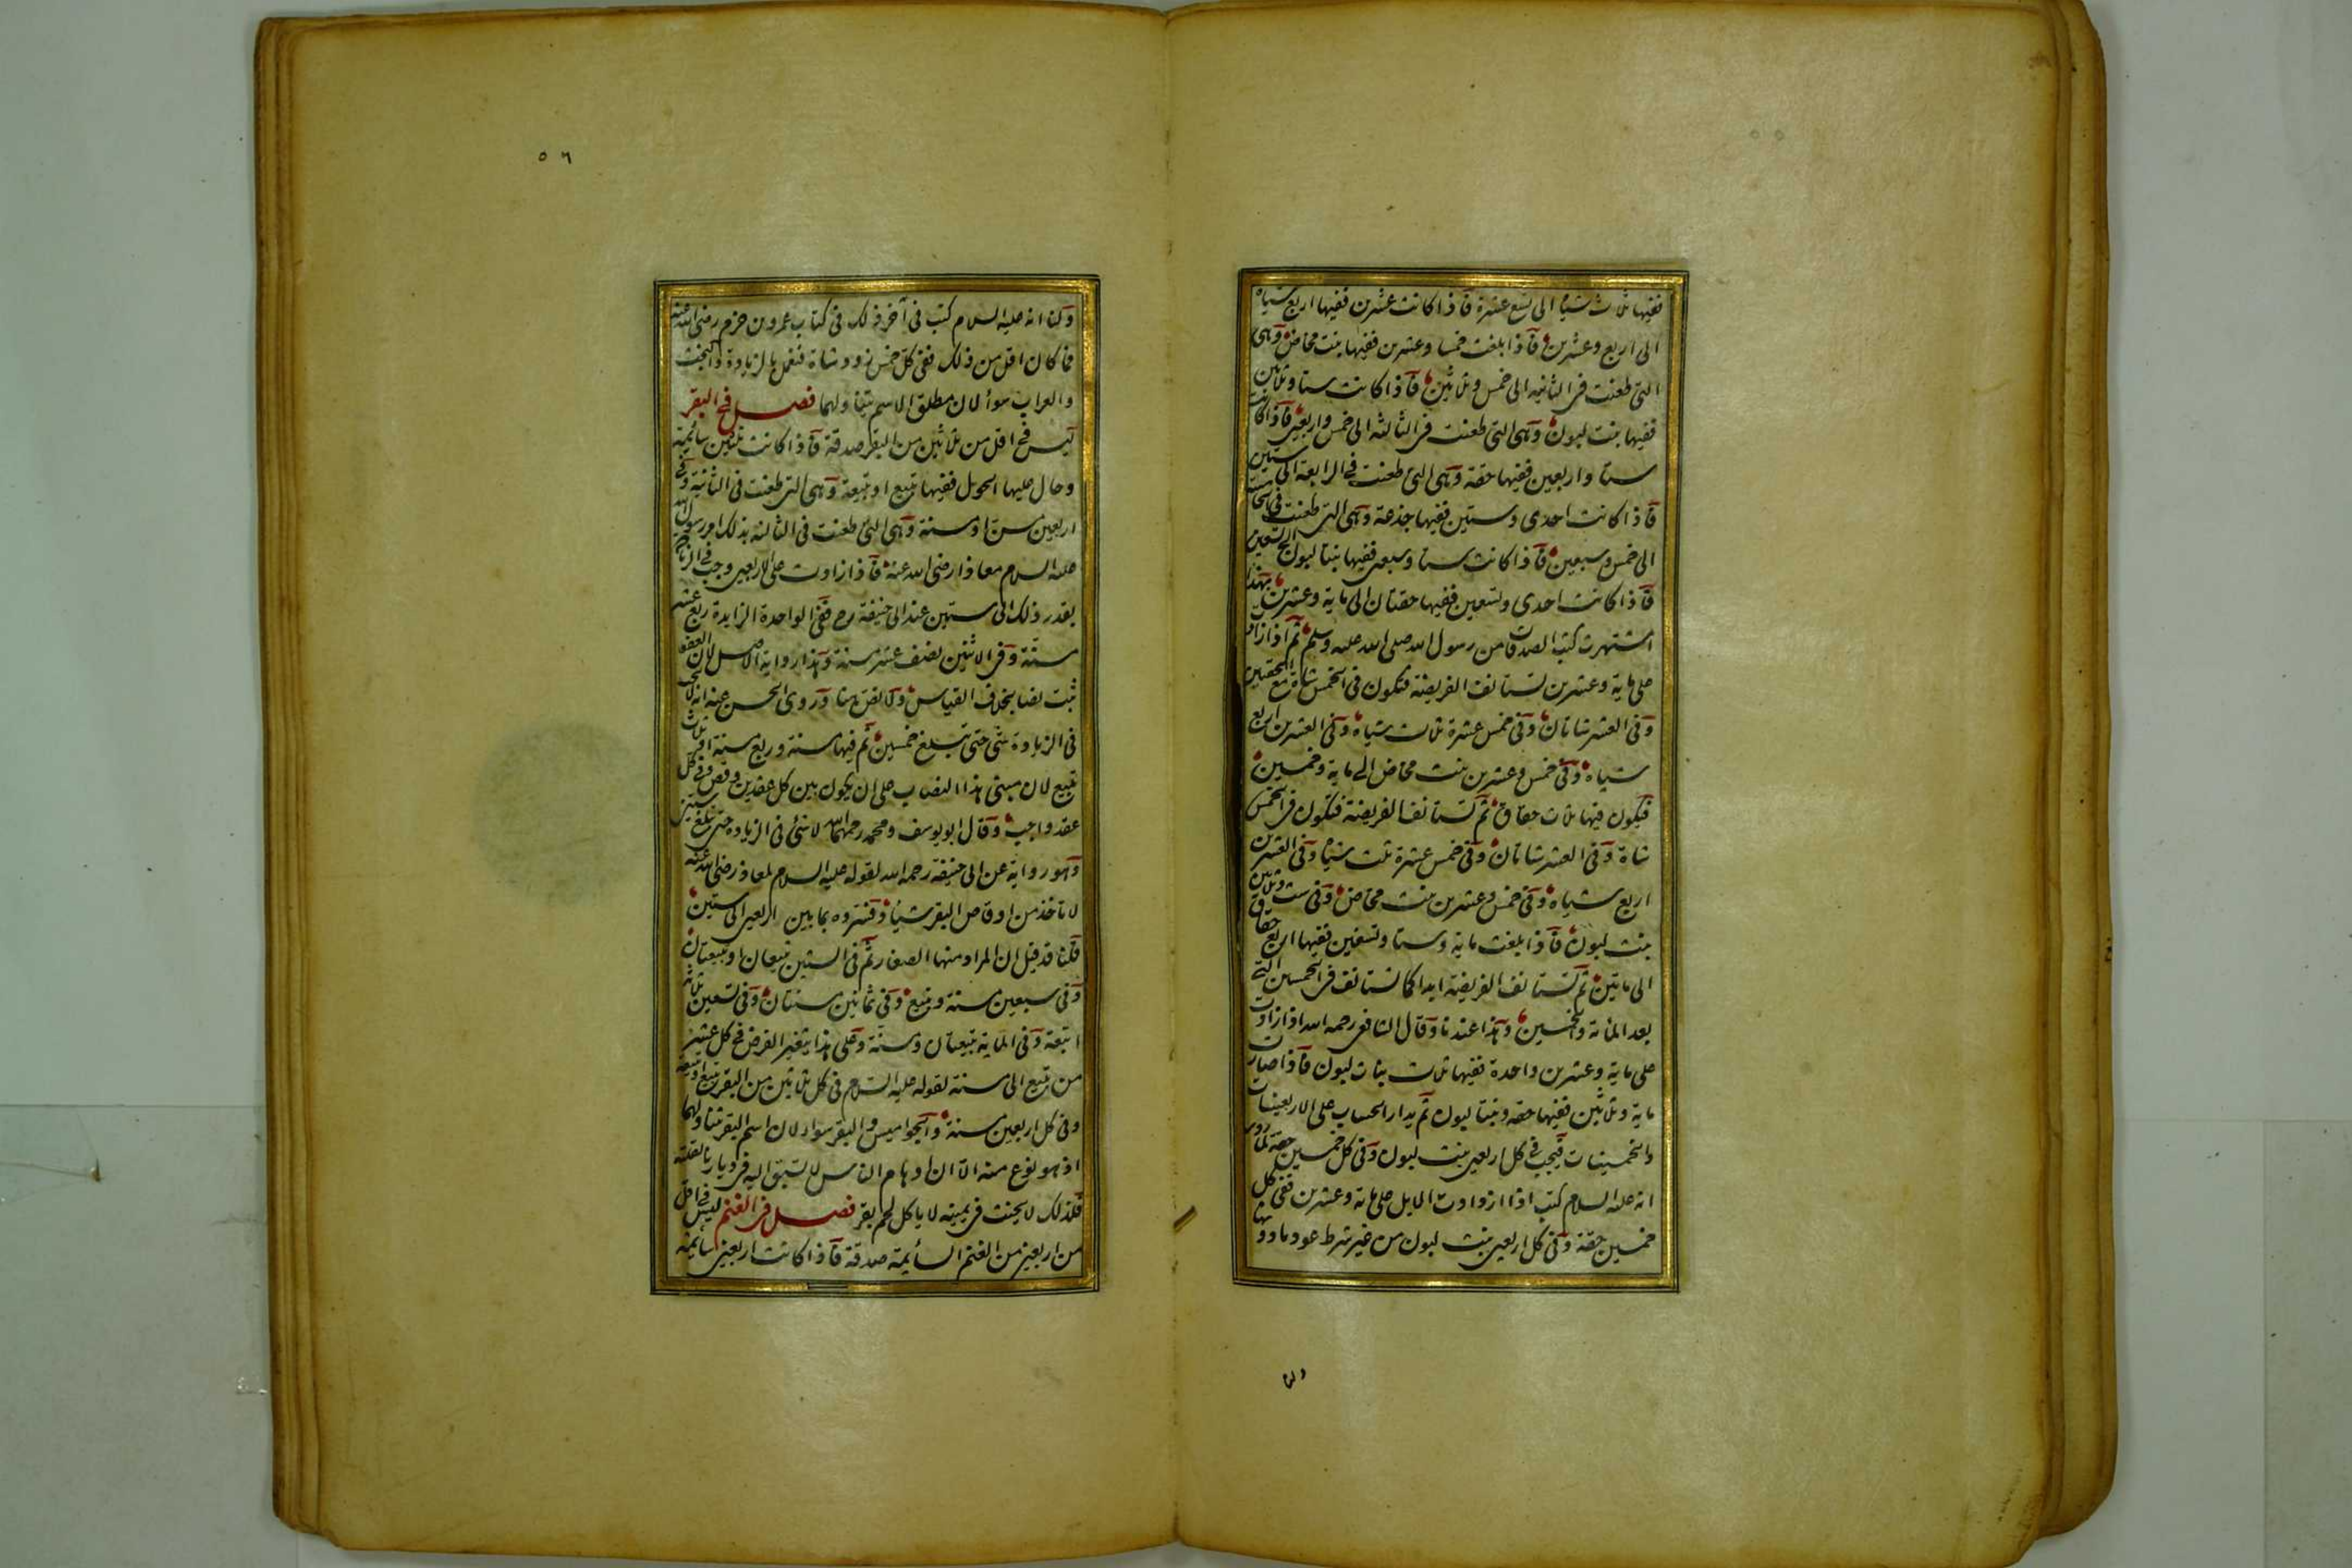 ففيها ثلاث شياه الى تسع عشرة فاذا كانت عشرين ففيها اربع شياه
الى اربع وعشرين فاذا بلغت خمسا وعشرين ففيها بنت مخاض وهى
التى طعنت فى الثانيه الى خمس وثلاثين فاذا كانت ستا وثلاثين
ففيها بنت لبون وهى التى طعنت فى الثالثه الى خمس واربعين فاذا كانت
ستا واربعين ففيها حقة وهى التى طعنت فى الرابعة الى ستين
فاذا كانت احدى وستين ففيها جذعة وهى التى طعنت فى الخامسة
الى خمس وسبعين فاذا كانت ستا وسبعين ففيها بنتا لبون الى تسعين
فاذا كانت احدى وتسعين ففيها حقتان الى ماية وعشرين بهذا
اشتهرت كتب الصدقات من رسول الله صلى الله عليه وسلم ثم اذا زادت
على ماية وعشرين تستانف الفريضة فتكون فى الخمس شاة مع الحقتين
وفى العشر شاتان وفى خمس عشرة ثلاث شياه وفى العشرين اربع
شياه وفى خمس وعشرين بنت مخاض الى ماية وخمسين
فيكون فيها ثلاث حقاق ثم تستانف الفريضة فتكون فى الخمس
شاة وفى العشر شاتان وفى خمس عشرة ثلث شياه وفى العشرين
اربع شياه وفى خمس وعشرين بنت مخاض وفى ست وثلاثين
بنت لبون فاذا بلغت ماية وستا وتسعين ففيها اربع حقاق
الى ماتين ثم تستانف الفريضة ابدا كما تستانف فى الخمسين التى
بعد الماىة والخمسين وهذا عندنا وقال الشافعى رحمه الله اذا زادت
على ماية وعشرين واحدة ففيها ثلاث بنات لبون فاذا صارت
ماية وثلاثين ففيها حقه وبنتا لبون ثم يدار الحساب على الاربعينات
والخمسينات فيجب فى كل اربعين بنت لبون وفى كل خمسين حقة لما روى
انه عليه السلام كتب اذا ازدادت الابل على ماىة وعشرين ففى كل
خمسين حقة وفى كل اربعين بنت لبون من غير شرط عود ما دونها
ولنا
٥٦
ولنا انه عليه السلام كتب فى آخر ذلك فى كتاب عمرو بن حزم رضى الله عنه
فما كان اقل من ذلك ففى كل خمس ذود شاة فنعمل بالزيادة والبخت
والعراب سوأ لان مطلق الاسم يتناولهما فصل فى البقر
ليس فى اقل من ثلاثين من البقر صدقة فاذا كانت ثلثين سائمة
وحال عليها الحول ففيها تبيع او تبيعة وهى التى طعنت فى الثانية وفى
اربعين مسن او مسنة وهى التى طعنت فى الثالثه بذلك امر رسول الله
عليه السلام معاذا رضى الله عنه فاذا زادت على الاربعين وجب فى الزيادة
بقدر ذلك الى ستين عند ابى حنيفة رح ففى الواحدة الزايدة ربع عشر
مسنة وفى الاثنين نصف عشر مسنة وهذا رواية الاصل لان العفو
ثبت نصا بخلاف القياس ولا نص هنا وروى الحسن عنه انه لا يجب
فى الزيادة شى حتى تبلغ خمسين ثم فيها مسنة وربع مسنة او ثلث
تبيع لان مبنى هذا النصاب على ان يكون بين كل عقدين وقص وفى كل
عقد واجب وقال ابو يوسف ومحمد رحمهما الله لا شئ فى الزياده حتى تبلغ ستين
وهو رواية عن ابى حنيفة رحمه الله لقوله عليه السلام لمعاذ رضى الله عنه
لا تاخذ من اوقاص البقر شيأ وفسروه بما بين اربعين الى ستين
قلنا قد قيل ان المراد منها الصغار ثم فى الستين تبيعان او تبيعتان
وفى سبعين مسنة وتبيع وفى ثمانين مسنتان وفى تسعين ثلاثة
اتبعة وفى الماية تبيعتان ومسنة وعلى هذا يتغير الفرض فى كل عشر
من تبيع الى مسنة لقوله عليه السلام فى كل ثلاثين من البقر تبيع او تبيعة
وفى كل اربعين مسنة والجواميس والبقر سواء لان اسم البقر يتناولهما
اذ هو نوع منه الا ان اوهام الناس لا تسبق اليه فى ديارنا لقلته
فلذلك لا يحنث فى يمينه لا ياكل لحم بقر فصل فى الغنم ليس فى اقل
من اربعين من الغنم السايمة صدقة فاذا كانت اربعين سايمة